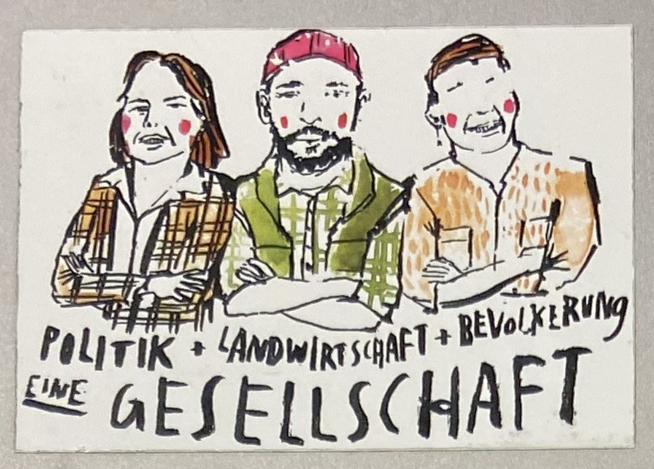 POLITIK + LANDWIRTSCHAFT + BEVOLKERUNG
EINE GESELLSCHAFT